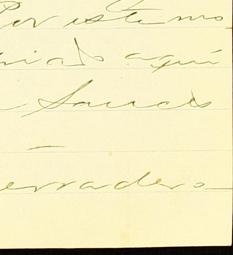 Por este mo
aquí
Sauces
erradero